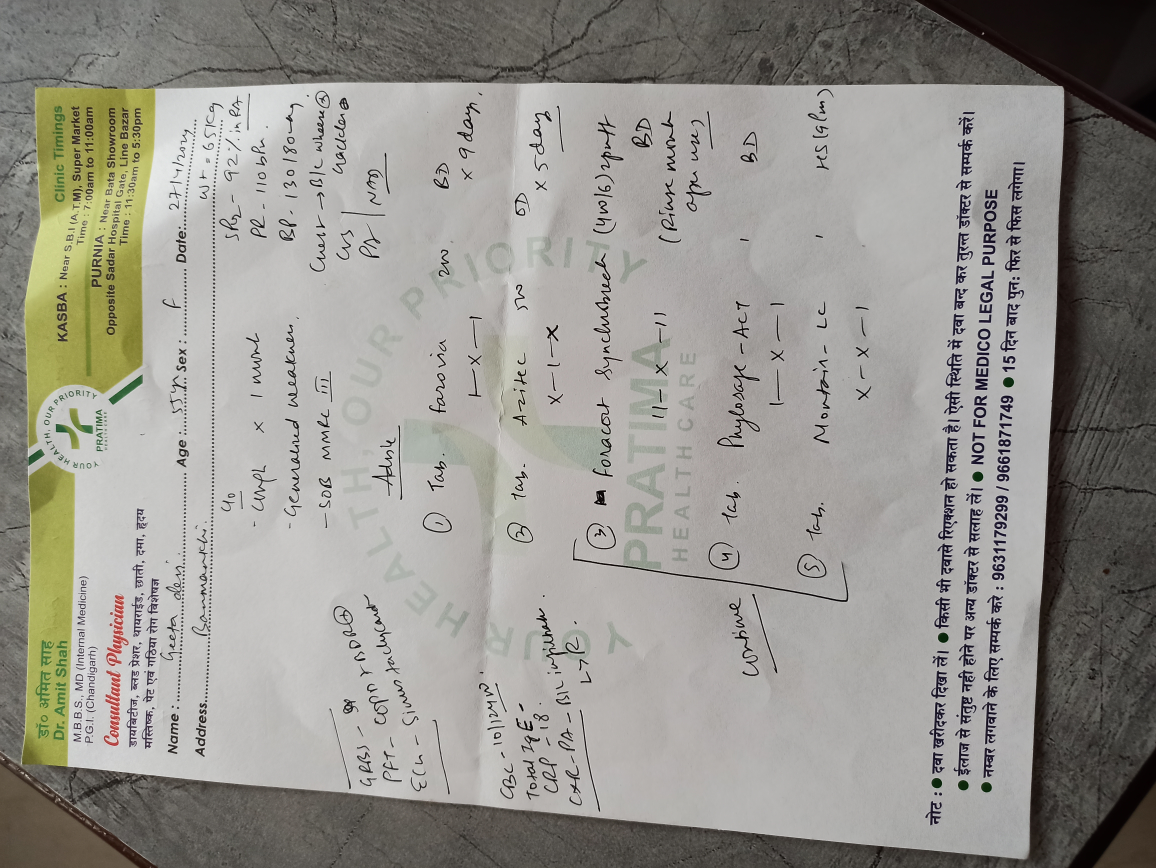 डॉ० अमित साह
Dr. Amit Shah
M.B.B.S., MD (Internal Medicine)
P.G.I. (Chandigarh)
Consultant Physician
डायबिटीज, ब्लड प्रेशर, थायराईड, छाती, दमा, हृदय
मस्तिष्क, पेट एवं गठिया रोग विशेषज्ञ
YOUR HEALTH, OUR PRIORITY
PRATIMA
HEALTH CARE
Clinic Timings
KASBA : Near S.B.I (A.T.M), Super Market
Time : 7:00am to 11:00am
PURNIA : Near Bata Showroom
Opposite Sadar Hospital Gate, Line Bazar
Time : 11:30am to 5:30pm
Name : Geeta devi Age : 55yrs Sex : F Date: 27/4/2024
Address Banmankhi. Wt = 65kg
SPO2 - 92% in RA
PR - 110 bPM.
BP - 130/80 mmHg
Chest → B/L wheeze ⊕
crackles ⊕
CVS
PA | NAD
C/o
- Cough x 1 month
- Generalised weakness.
- SOB MMRC III
GRBS -
PFT - COPD + BDR ⊕
ECG - Sinus tachycard
CBC - 10/1124
Total IgE -
CRP - 18.
CXR-PA - B/L infiltrates.
L > R.
Advice
① Tab. Farovia 200. BD
1 — X — 1 x 9 day.
② Tab. Azitec 500 OD
X - 1 - X x 5 days
③ Foracort Synchrobreath (400/6) 2 puff
11 - X - 11 BD
(Rinse mouth
after use)
④ Tab. Phylosape - ACT 1 BD
1 — X — 1
⑤ Tab. Montain - LC 1 HS (9 Pm)
X - X - 1
continue
YOUR HEALTH, OUR PRIORITY
PRATIMA
HEALTH CARE
नोट : ● दवा खरीदकर दिखा लें। ● किसी भी दवासे रिएक्शन हो सकता है। ऐसी स्थिति में दवा बन्द कर तुरन्त डॉक्टर से सम्पर्क करें।
● ईलाज से संतुष्ट नही होने पर अन्य डॉक्टर से सलाह लें। ● NOT FOR MEDICO LEGAL PURPOSE
● नम्बर लगवाने के लिए सम्पर्क करे : 9631179299 / 9661871749 ● 15 दिन बाद पुन: फिर से फिस लगेगा।